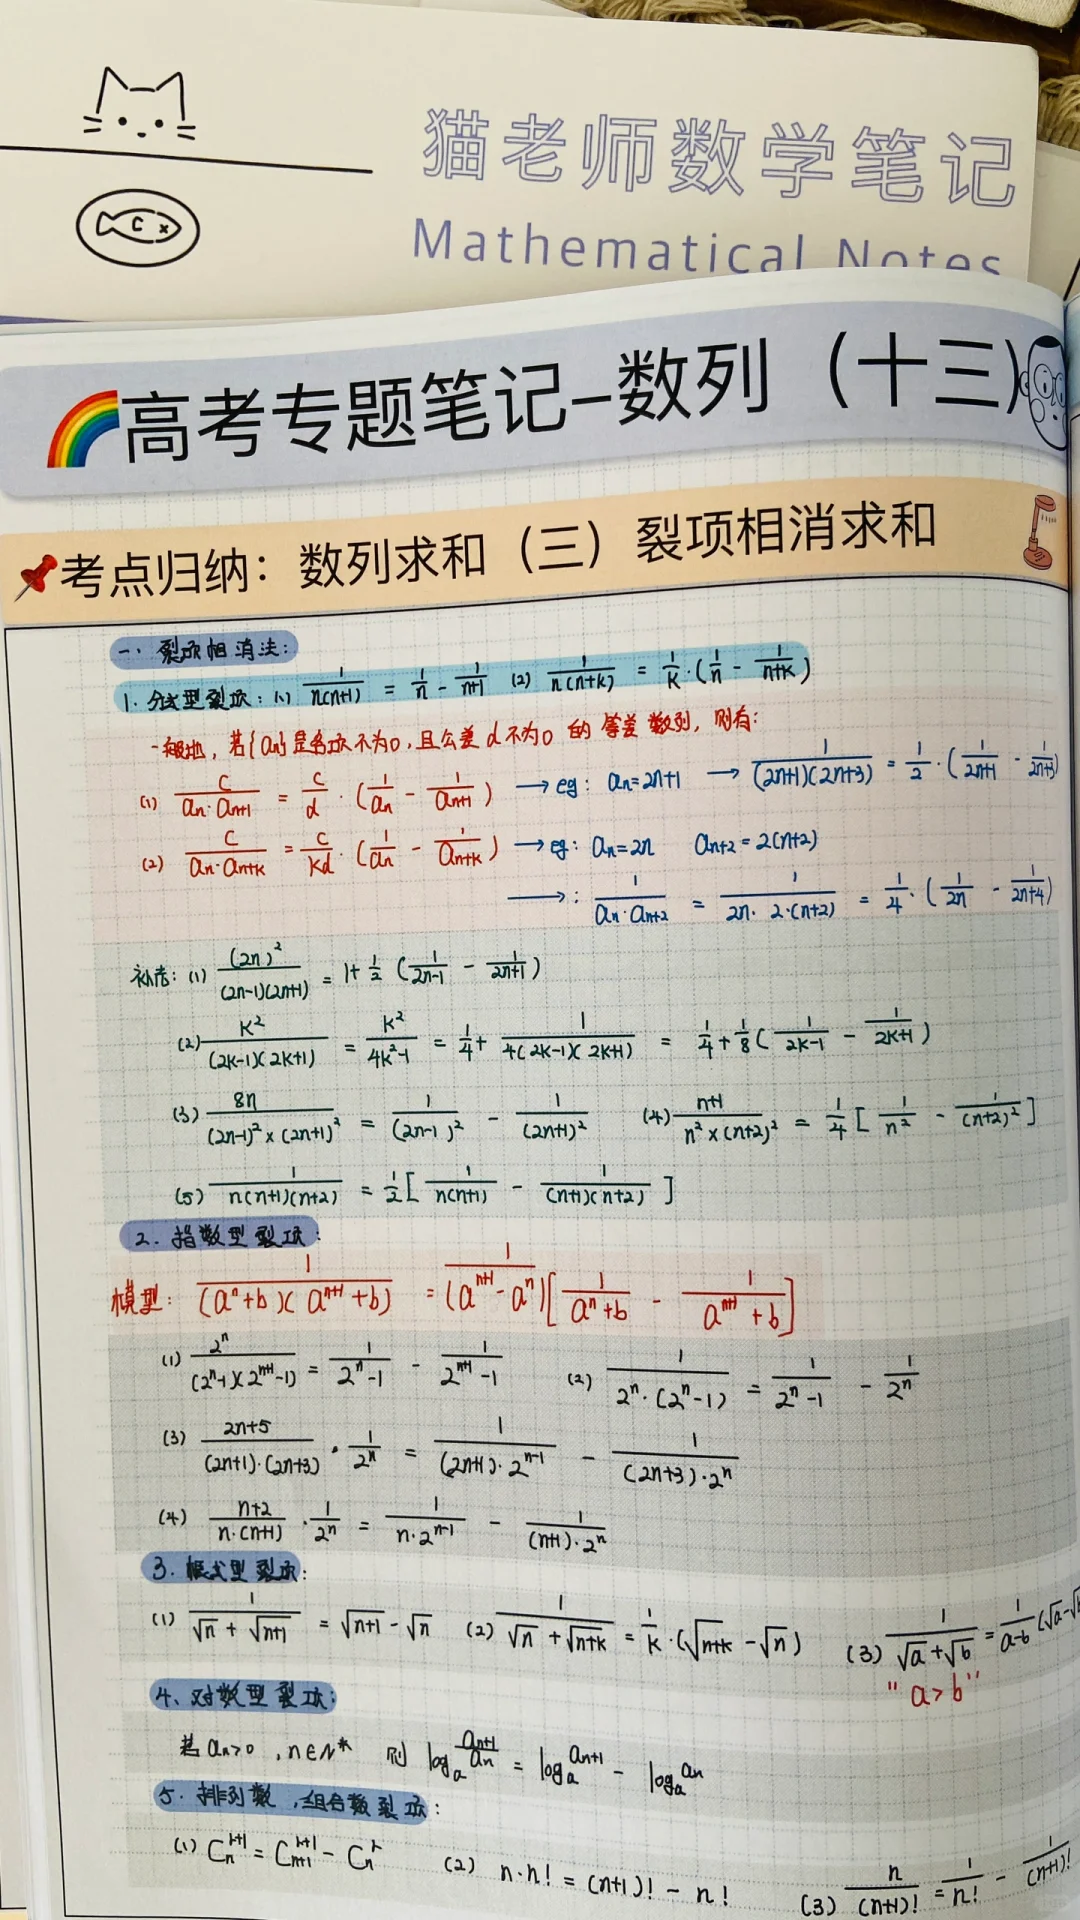 猫老师数学笔记
Mathematical Notes
高考专题笔记-数列（十三）
考点归纳：数列求和（三）裂项相消求和
一、裂项相消法:
1. 分式型裂项: (1) 1/(n(n+1)) = 1/n - 1/(n+1) (2) 1/(n(n+k)) = 1/k·(1/n - 1/(n+k))
一般地, 若{an}是各项不为0, 且公差d不为0的等差数列, 则有:
(1) c/(an·an+1) = c/d·(1/an - 1/an+1) → eg: an=2n+1 → 1/((2n+1)(2n+3)) = 1/2·(1/(2n+1) - 1/(2n+3))
(2) c/(an·an+k) = c/(kd)·(1/an - 1/an+k) → eg: an=2n an+2=2(n+2)
→: 1/(an·an+2) = 1/(2n·2·(n+2)) = 1/4·(1/(2n) - 1/(2n+4))
补充: (1) (2n)²/((2n-1)(2n+1)) = 1+1/2(1/(2n-1) - 1/(2n+1))
(2) k²/((2k-1)(2k+1)) = k²/(4k²-1) = 1/4+1/(4(2k-1)(2k+1)) = 1/4+1/8(1/(2k-1) - 1/(2k+1))
(3) 8n/((2n-1)²×(2n+1)²) = 1/(2n-1)² - 1/(2n+1)² (4) (n+1)/(n²×(n+2)²) = 1/4[1/n² - 1/(n+2)²]
(5) 1/(n(n+1)(n+2)) = 1/2[1/(n(n+1)) - 1/((n+1)(n+2))]
2. 指数型裂项:
模型: 1/((aⁿ+b)(aⁿ⁺¹+b)) = 1/(aⁿ⁺¹-aⁿ)[1/(aⁿ+b) - 1/(aⁿ⁺¹+b)]
(1) 2ⁿ/((2ⁿ-1)(2ⁿ⁺¹-1)) = 1/(2ⁿ-1) - 1/(2ⁿ⁺¹-1) (2) 1/(2ⁿ·(2ⁿ-1)) = 1/(2ⁿ-1) - 1/2ⁿ
(3) (2n+5)/((2n+1)·(2n+3))·1/2ⁿ = 1/((2n+1)·2ⁿ⁻¹) - 1/((2n+3)·2ⁿ)
(4) (n+2)/(n·(n+1))·1/2ⁿ = 1/(n·2ⁿ⁻¹) - 1/((n+1)·2ⁿ)
3. 根式型裂项:
(1) 1/(√n+√(n+1)) = √(n+1)-√n (2) 1/(√n+√(n+k)) = 1/k·(√(n+k)-√n) (3) 1/(√a+√b) = 1/(a-b)(√a-√b
"a>b"
4、对数型裂项:
若an>0, n∈N* 则 logₐ(an+1/an) = logₐan+1 - logₐan
5. 排列数, 组合数裂项:
(1) Cₙʳ⁺¹ = Cₙ₊₁ʳ⁺¹ - Cₙʳ (2) n·n! = (n+1)! - n! (3) n/(n+1)! = 1/n! - 1/(n+1)!